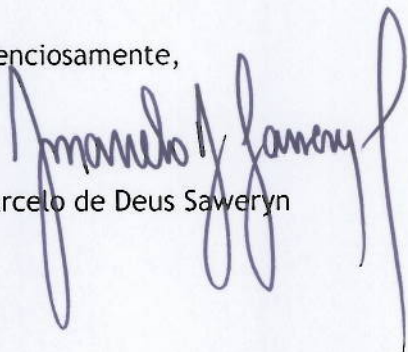 enciosamente,
rcelo de Deus Saweryn